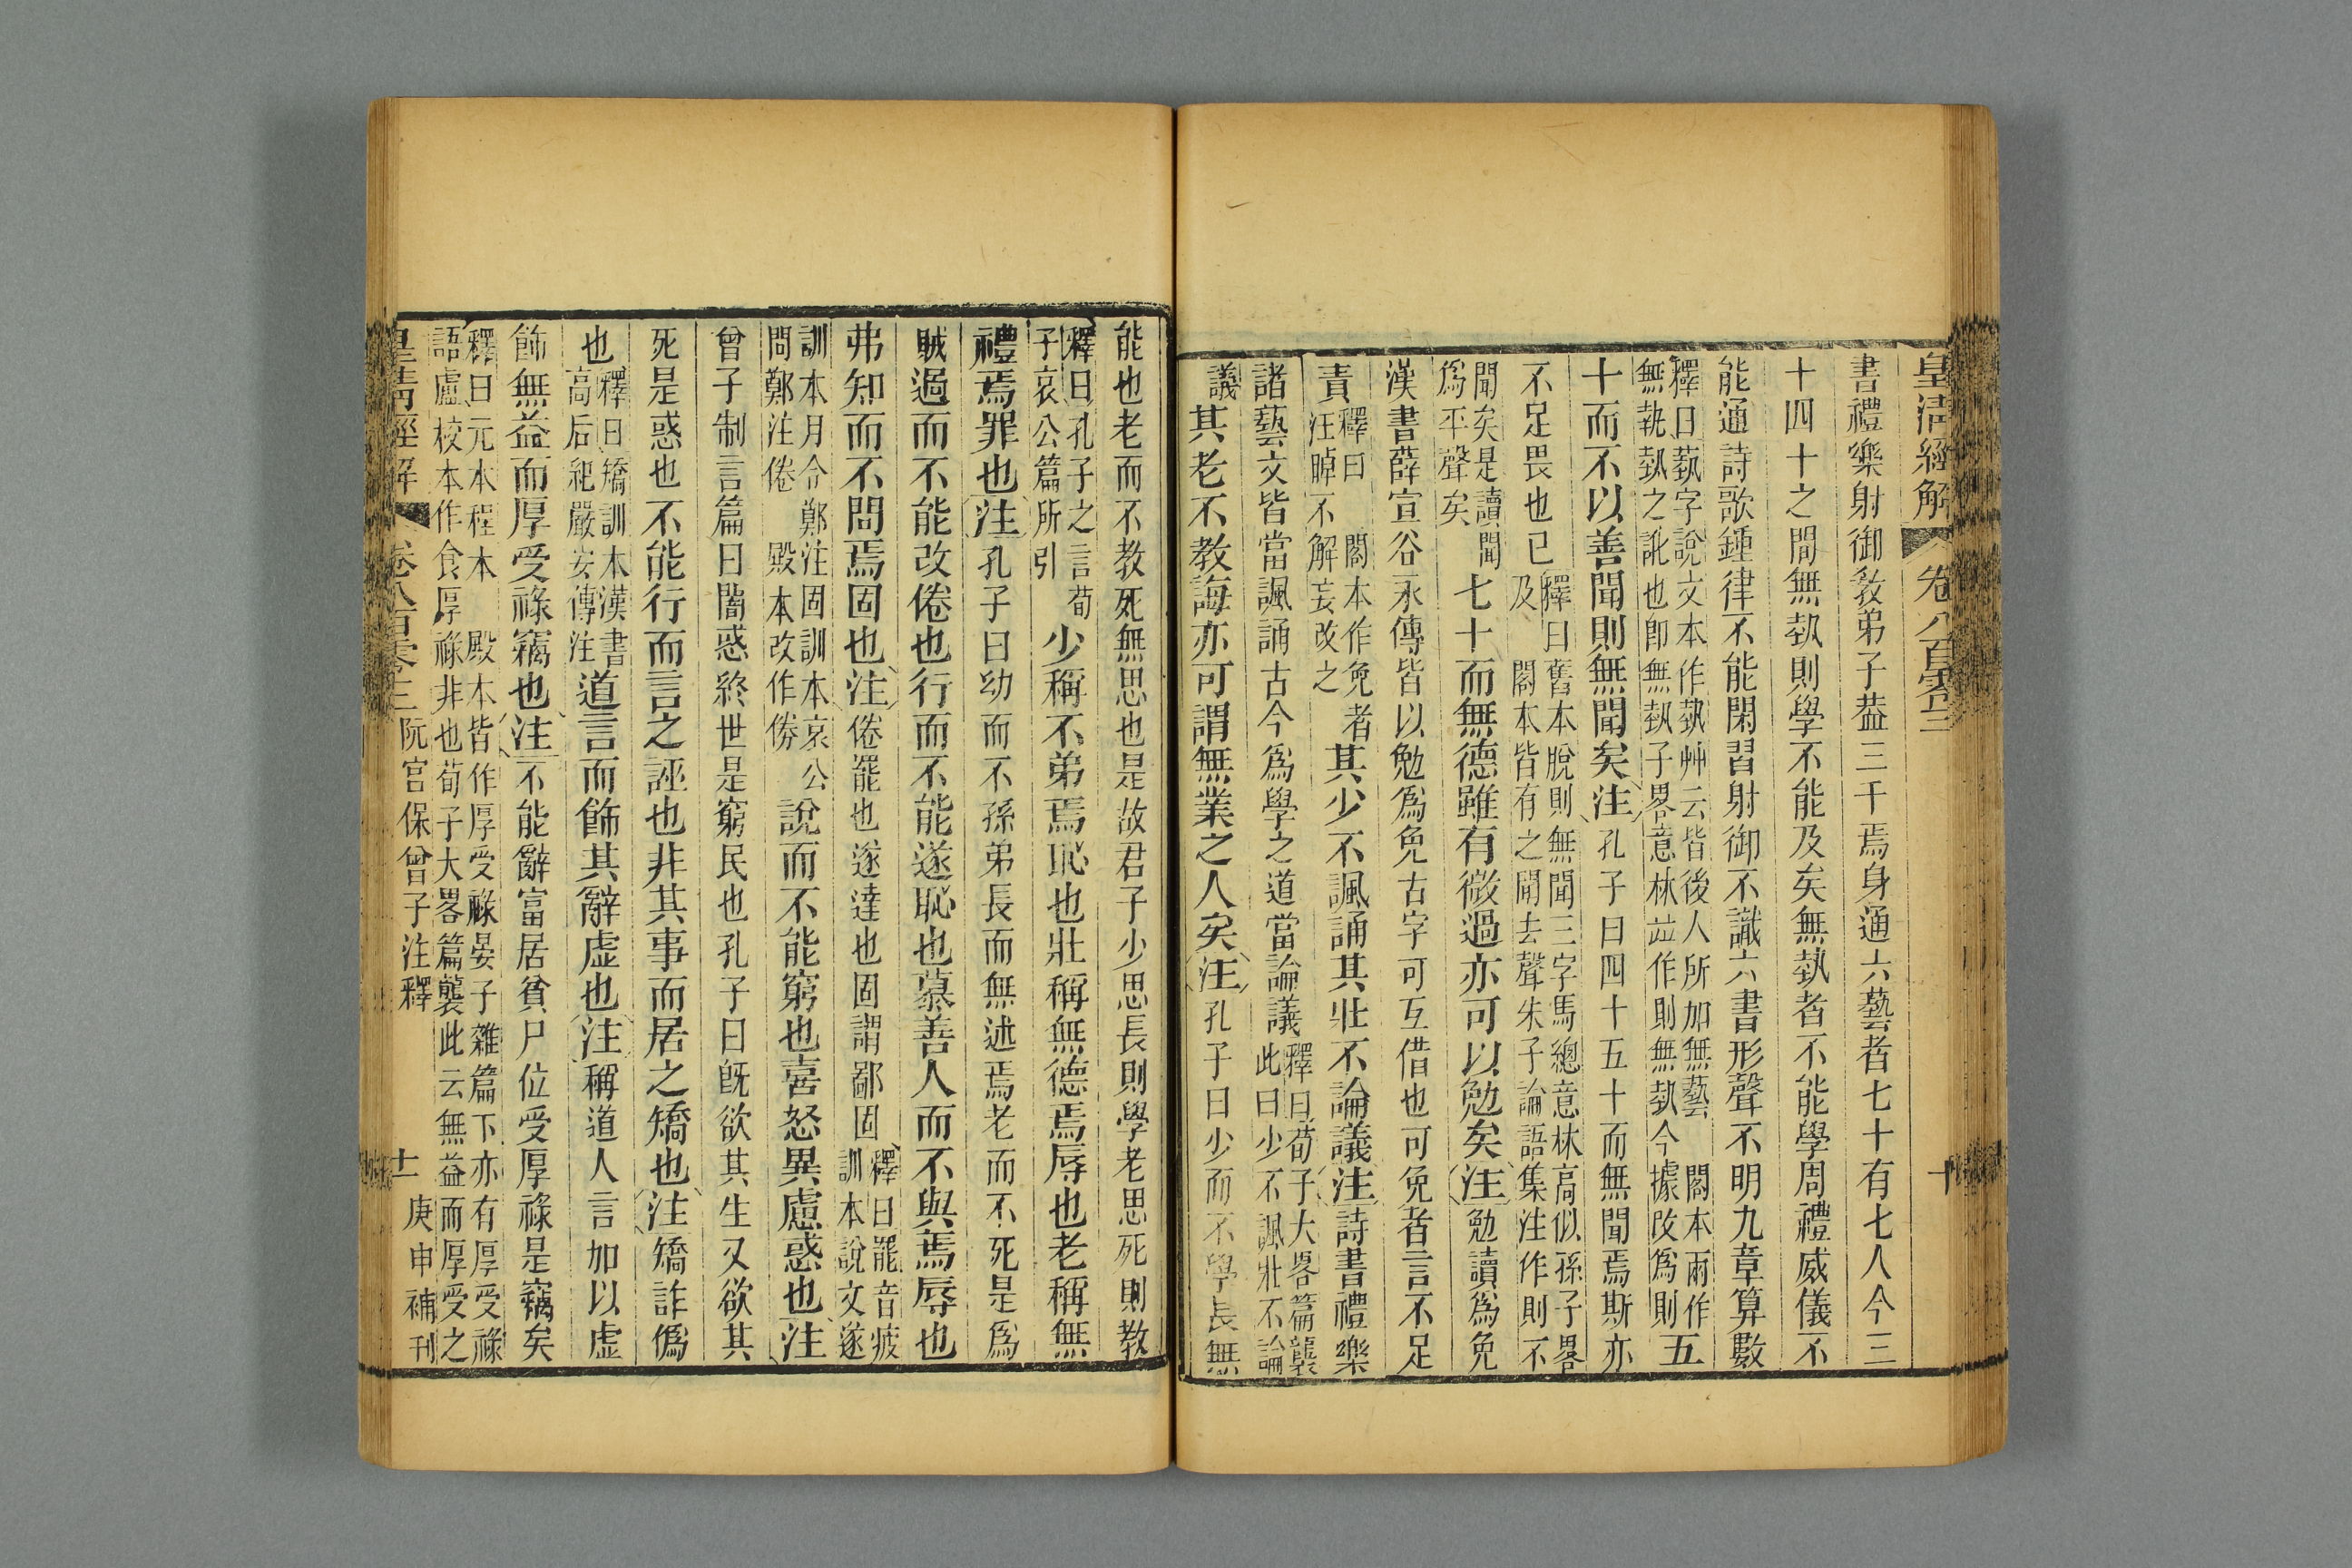 皇清經解 卷八百零三 十
書禮樂射御敎弟子葢三千焉身通六藝者七十有七人今三
十四十之間無埶則學不能及矣無埶者不能學周禮威儀不
能通詩歌鍾律不能閑習射御不識六書形聲不明九章算數
釋曰蓺字說文本作埶艸云皆後人所加無藝 閣本兩作
無執埶之訛也卽無埶子畧意林竝作則無執今據改爲則五
十而不以善聞則無聞矣注孔子曰四十五十而無聞焉斯亦
不足畏也已釋曰舊本脫則無聞三字馬總意林高似孫子畧
及 閣本皆有之聞去聲朱子論語集注作則不
聞矣是讀聞
爲平聲矣七十而無德雖有微過亦可以勉矣注勉讀爲免
漢書薛宣谷永傳皆以勉爲免古字可互借也可免者言不足
責釋曰 閣本作免者
汪晫不解妄改之其少不諷誦其壯不論議注詩書禮樂
諸藝文皆當諷誦古今爲學之道當論議釋曰荀子大畧篇襲
此曰少不諷壯不論
議其老不教誨亦可謂無業之人矣注孔子曰少而不學長無
能也老而不教死無思也是故君子少思長則學老思死則教
釋曰孔子之言荀
子哀公篇所引少稱不弟焉恥也壯稱無德焉辱也老稱無
禮焉罪也注孔子曰幼而不孫弟長而無述焉老而不死是爲
賊過而不能改倦也行而不能遂恥也慕善人而不與焉辱也
弗知而不問焉固也注倦罷也遂達也固謂鄙固釋曰罷音疲
訓本說文遂
訓本月令鄭注固訓本哀公
問鄭注倦 殿本改作劵說而不能窮也喜怒異慮惑也注
曾子制言篇曰闇惑終世是窮民也孔子曰旣欲其生又欲其
死是惑也不能行而言之誣也非其事而居之矯也注矯詐僞
也釋曰矯訓本漢書
高后紀嚴安傳注道言而飾其辭虛也注稱道人言加以虛
飾無益而厚受祿竊也注不能辭富居貧尸位受厚祿是竊矣
釋曰元本程本 殿本皆作厚受祿晏子雜篇下亦有厚受祿
語盧校本作食厚祿非也荀子大畧篇襲此云無益而厚受之
皇清經解 卷八百零三 阮宮保曾子注釋 十一 庚申補刊